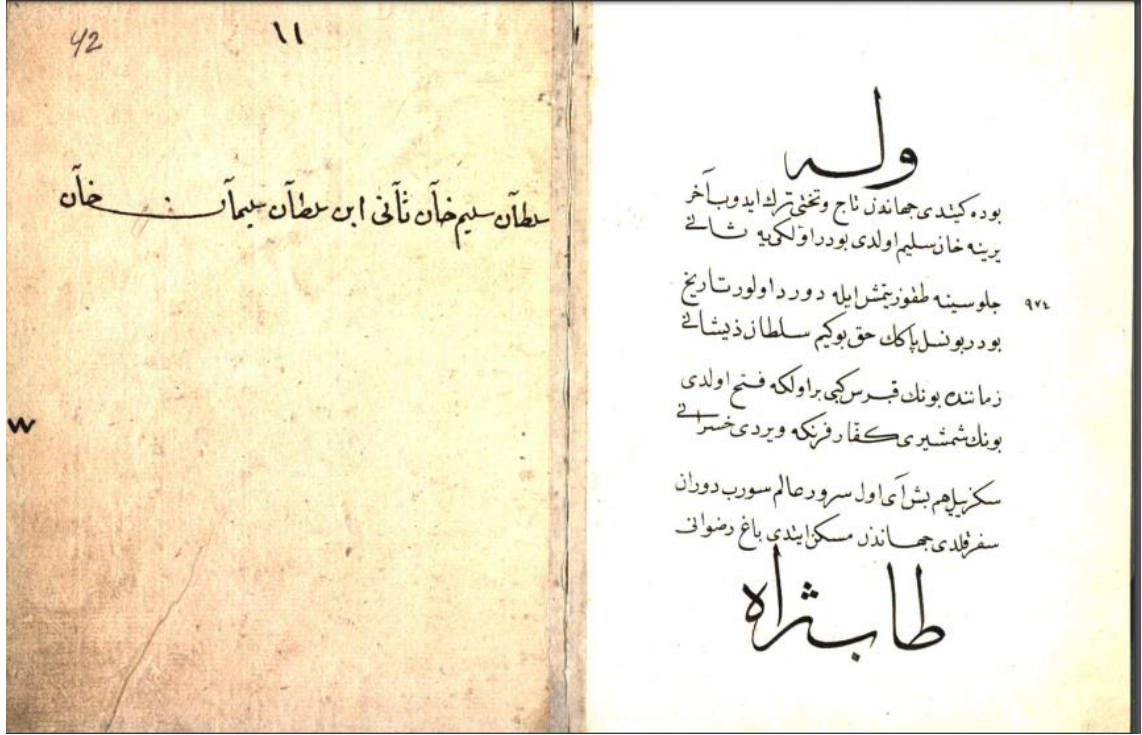 42
١١
سلطان سليم خان ثانى ابن سلطان سليمان خان
W
وله
بوده كيتدى جهاندن تاج و تختى ترك ايدوب آخر
يرينه خان سليم اولدى بودر اولكى يه ثانى
جلوسينه طقوز يتمش ايله دورد اولور تاريخ
٩٧٤
بودر بو نسل پاكك حق بو كيم سلطان ذيشانى
زماننده بونك قبرس كبى بر اولكه فتح اولدى
بونك شمشيرى كفار فرنكه ويردى خسرانى
سكز ييل هم بش آى اول سرور عالم سورب دوران
سفر قلدى جهاندن مسكن ايتدى باغ رضوانى
طاب ثراه